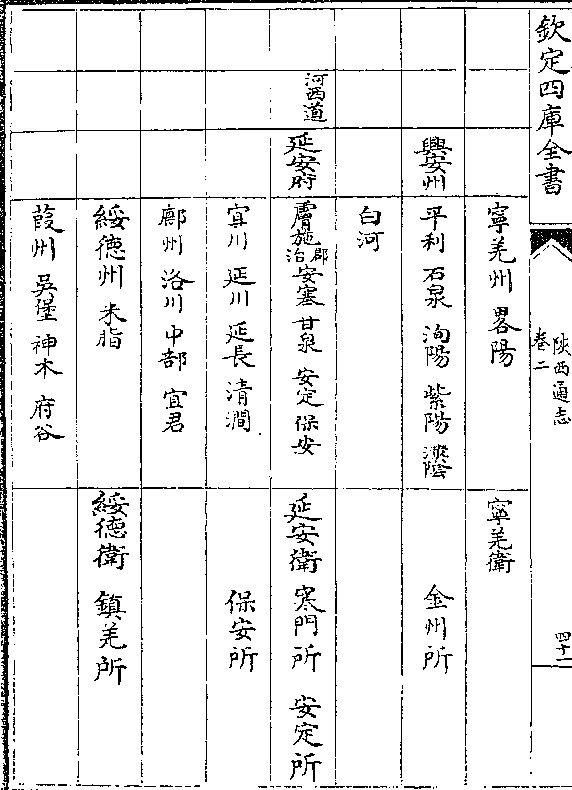 欽定四庫全書
陜西通志
卷二
四十二
寧羌州 畧陽 寧羌衛
興安州 平利 石泉 洵陽 紫陽 漢陰 金州所
白河
河西道 延安府 膚施 郡治 安塞 甘泉 安定 保安 延安衛 塞門所 安定所
宜川 延川 延長 清澗 保安所
鄜州 洛川 中部 宜君
綏德州 米脂 綏德衛 鎮羌所
葭州 吳堡 神木 府谷